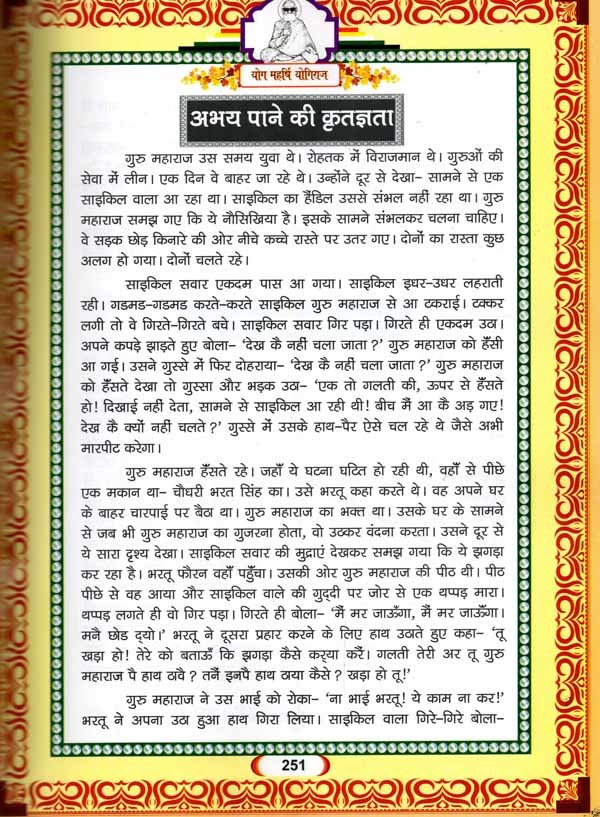 योग महर्षि योगिराज
अभय पाने की कृतज्ञता
गुरु महाराज उस समय युवा थे। रोहतक में विराजमान थे। गुरुओं की
सेवा में लीन। एक दिन वे बाहर जा रहे थे। उन्होंने दूर से देखा– सामने से एक
साइकिल वाला आ रहा था। साइकिल का हैंडिल उससे संभल नहीं रहा था। गुरु
महाराज समझ गए कि ये नौसिखिया है। इसके सामने संभलकर चलना चाहिए।
वे सड़क छोड़ किनारे की ओर नीचे कच्चे रास्ते पर उतर गए। दोनों का रास्ता कुछ
अलग हो गया। दोनों चलते रहे।
साइकिल सवार एकदम पास आ गया। साइकिल इधर-उधर लहराती
रही। गडमड-गडमड करते-करते साइकिल गुरु महाराज से आ टकराई। टक्कर
लगी तो वे गिरते-गिरते बचे। साइकिल सवार गिर पड़ा। गिरते ही एकदम उठा।
अपने कपड़े झाड़ते हुए बोला– 'देख कै नहीं चला जाता ?' गुरु महाराज को हँसी
आ गई। उसने गुस्से में फिर दोहराया– 'देख कै नहीं चला जाता ?' गुरु महाराज
को हँसते देखा तो गुस्सा और भड़क उठा– 'एक तो गलती की, ऊपर से हँसते
हो! दिखाई नहीं देता, सामने से साइकिल आ रही थी! बीच मैं आ कै अड़ गए!
देख कै क्यों नहीं चलते ?' गुस्से में उसके हाथ-पैर ऐसे चल रहे थे जैसे अभी
मारपीट करेगा।
गुरु महाराज हँसते रहे। जहाँ ये घटना घटित हो रही थी, वहाँ से पीछे
एक मकान था– चौधरी भरत सिंह का। उसे भरतू कहा करते थे। वह अपने घर
के बाहर चारपाई पर बैठा था। गुरु महाराज का भक्त था। उसके घर के सामने
से जब भी गुरु महाराज का गुजरना होता, वो उठकर वंदना करता। उसने दूर से
ये सारा दृश्य देखा। साइकिल सवार की मुद्राएं देखकर समझ गया कि ये झगड़ा
कर रहा है। भरतू फौरन वहाँ पहुँचा। उसकी ओर गुरु महाराज की पीठ थी। पीठ
पीछे से वह आया और साइकिल वाले की गुद्दी पर जोर से एक थप्पड़ मारा।
थप्पड़ लगते ही वो गिर पड़ा। गिरते ही बोला– 'मैं मर जाऊँगा, मैं मर जाऊँगा।
मनै छोड द्यो।' भरतू ने दूसरा प्रहार करने के लिए हाथ उठाते हुए कहा– 'तू
खड़ा हो! तेरे को बताऊँ कि झगड़ा कैसे कर्‌या करैं। गलती तेरी अर तू गुरु
महाराज पै हाथ ठावै ? तनैं इनपै हाथ ठाया कैसे ? खड़ा हो तू!'
गुरु महाराज ने उस भाई को रोका– 'ना भाई भरतू! ये काम ना कर!'
भरतू ने अपना उठा हुआ हाथ गिरा लिया। साइकिल वाला गिरे-गिरे बोला–
251